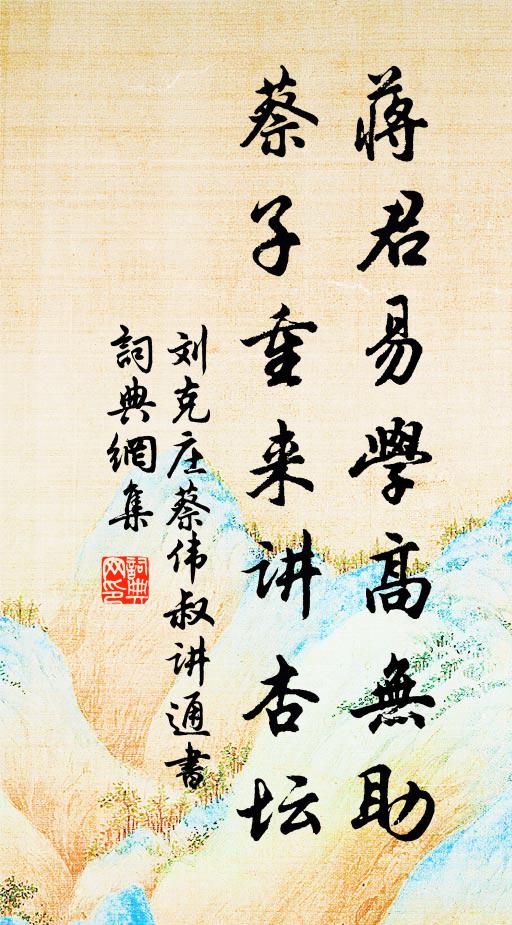 蒋君易學高無助
蔡子重来讲杏坛
刘克庄蔡伟叔讲通書
詞典網集
詞典網印